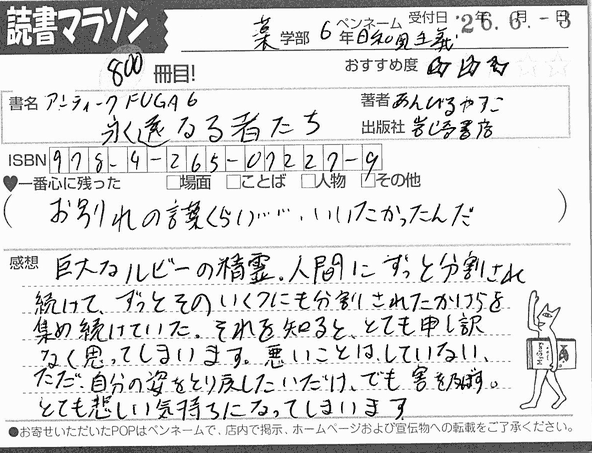 読書マラソン
薬学部 6年 ペンネーム 日和見主義 受付日 '26.6.-3 年 月 日
800冊目! おすすめ度 ☆☆☆
書名 アンティークFUGA 6
永遠なる者たち
著者 あんびるやすこ
出版社 岩崎書店
ISBN 978-4-265-07227-9
♥一番心に残った □場面 □ことば □人物 □その他
(お別れの言葉くらい……いいたかったんだ)
感想 巨大なルビーの精霊。人間にずっと分割され
続けて、ずっとそのいくつにも分割されたかけらを
集め続けていた。それを知ると、とても申し訳
なく思ってしまいます。悪いことは、していない、
ただ、自分の姿をとり戻したいだけ、でも害を及ぼす。
とても悲しい気持ちになってしまいます
●お寄せいただいたPOPはペンネームで、店内で掲示、ホームページおよび宣伝物への転載をご了承ください。